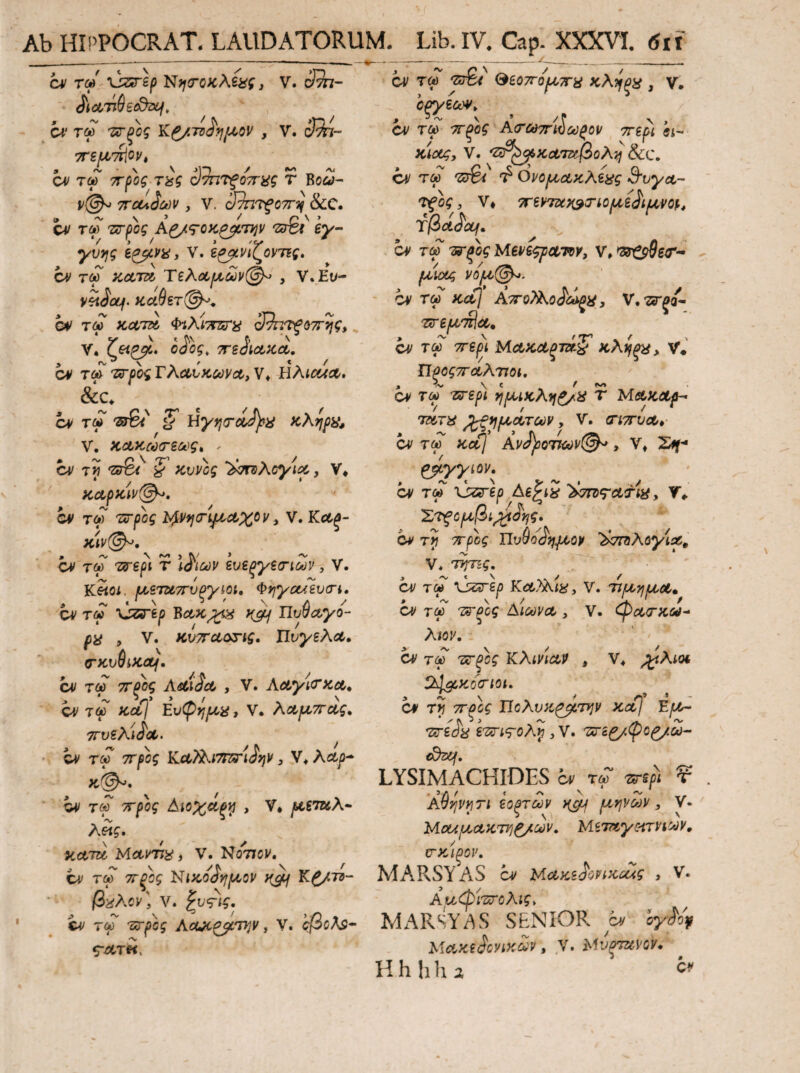 Ab HIPPOCRAT. LAUDATORUM. Lib. IV. Cap. XXXVI. 611
ἐν τῷ ὑπὲρ Νησοκλέους, v. ἐπι-
διατίθεσθαι.
ἐν τῷ πρὸς Κριτόδημον, v. ἐπι-
πεμπλον.
ἐν τῷ πρὸς τοὺς ἐπιτρόπους τ Βοιώ-
ν<unk>ος παίδων, v. ἐπιτροπὴ &c.
ἐν τῷ πρὸς Ἀριστοκράτην περὶ ἐγ-
γύης ἐράνου, v. ἐρανίζοντες.
ἐν τῷ κατὰ Τελαμῶνος, v. Εὐ-
νεῖδαι. κάθετος.
ἐν τῷ κατὰ Φιλίππου ἐπιτροπῆς,
v. ζειρά. ὁδός. πεδιακά.
ἐν τῷ πρὸς Γλαύκωνα, v. Ηλιαία.
&c.
ἐν τῷ περὶ τῦ Ηγησαίδρου κλήρου,
v. κακώσεως.
ἐν τῇ περὶ τῦ κυνὸς ἀπολογίᾳ, v.
καρκίνος.
ἐν τῷ πρὸς Μνησίμαχον, v. Καρ-
κίνος.
ἐν τῷ περὶ τ ἰδίων εὐεργεσιῶν, v.
Κεῖοι. μεταπύργιοι. Φηγαιεῦσι.
ἐν τῷ ὑπὲρ Βακχίου καὶ Πυθαγό-
ρου, v. κύπασσις. Πυγελα.
σκυθικαί.
ἐν τῷ πρὸς Λαΐδα, v. Λαγίσκα.
ἐν τῷ κατ' Εὐφήμου, v. λαμπάς.
πυελίδα.
ἐν τῷ πρὸς Καλλιππίδην, v. λάρ-
κος.
ἐν τῷ πρὸς Διοχάρη, v. μεταλ-
λεῖς.
κατὰ Μαντίου, v. Νότιον.
ἐν τῷ πρὸς Νικόδημον καὶ Κριτό-
βουλον, v. ξυστίς.
ἐν τῷ πρὸς Λαικράτην, v. ὀβολο-
στατεῖ.
ἐν τῷ περὶ Θεοπόμπου κλήρου, v.
ὀργεῶν.
ἐν τῷ πρὸς Ἀσωπόδωρον περὶ οἰ-
κίας, v. παρακαταβολὴ &c.
ἐν τῷ περὶ τ Ονομακλέους θυγα-
τρός, v. πεντακοσιομέδιμνοι,
Υβάδαι.
ἐν τῷ πρὸς Μενέστρατον, v. προθεσ-
μίας νόμος.
ἐν τῷ κατ' Ἀπολλοδώρου, v. προ-
πεμπτα.
ἐν τῷ περὶ Μακαρτάτου κλήρου, v.
Προσπάλτιοι.
ἐν τῷ περὶ ἡμικληρίου τ Μακαρ-
τάτου χρημάτων, v. σιπύα.
ἐν τῷ κατ' Ἀνδροτίωνος, v. Ση-
ράγγιον.
ἐν τῷ ὑπὲρ Δεξίου ἀποστασίου, v.
Στρομβιχίδης.
ἐν τῇ πρὸς Πυθόδημον ἀπολογίᾳ,
v. τῆτες.
ἐν τῷ ὑπὲρ Καλλίου, v. τίμημα.
ἐν τῷ πρὸς Δίωνα, v. φασκώ-
λιον.
ἐν τῷ πρὸς Κλινίαν, v. χίλιοι
διακόσιοι.
ἐν τῇ πρὸς Πολυκράτην κατ' Εμ-
πέδου ἐπιστολῇ, v. περιφοριῶ-
σθαι.
LYSIMACHIDES ἐν τῷ περὶ τ
Ἀθήνησι ἑορτῶν καὶ μηνῶν, v.
Μαιμακτηριών. Μεταγειτνιών.
σκίρον.
MARSYAS ἐν Μακεδονικαῖς, v.
Ἀμφίπολις.
MARSYAS SENIOR ἐν ὀγδόῃ
Μακεδονικῶν, v. Μύρτανον.
H h h h 2 ἐν